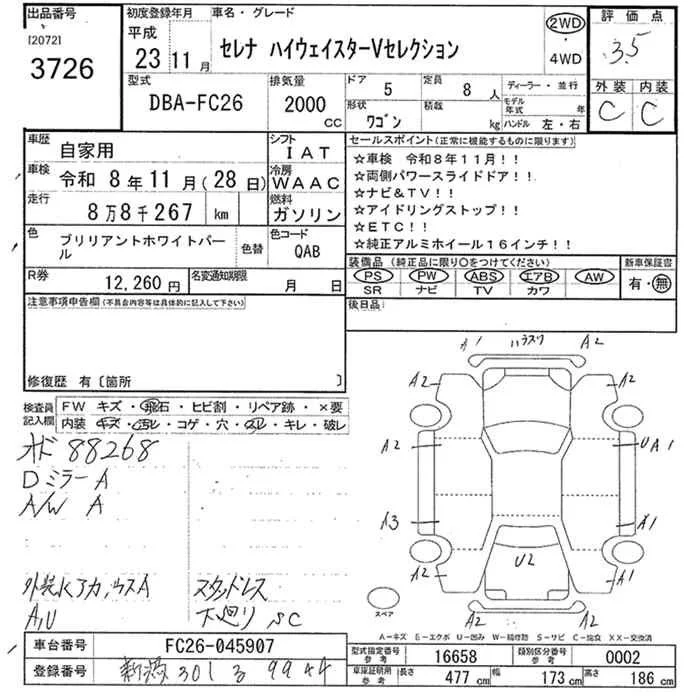 出品番号
[2072]
3726
初度登録年月
平成
23 11 月
車名・グレード
セレナ ハイウェイスターVセレクション
2WD
・
4WD
評価点
3.5
外装 内装
C C
型式
DBA-FC26
排気量
2000
CC
ドア
5
定員
8 人
形状
ワゴン
積載
kg
ディーラー・並行
モデル年式 年
ハンドル 左・右
車歴
自家用
シフト
IAT
車検
令和 8年 11月(28日)
冷房
WAAC
走行
8万8千267 km
燃料
ガソリン
色
ブリリアントホワイトパール
色替
色コード
QAB
R券
12,260円
名変通知期限
月 日
セールスポイント(正常に機能するものに限ります)
☆車検 令和8年11月!!
☆両側パワースライドドア!!
☆ナビ&TV!!
☆アイドリングストップ!!
☆ETC!!
☆純正アルミホイール16インチ!!
装備品(純正品に限り○をつけてください)
PS PW ABS エアB AW
SR ナビ TV カワ
新車保証書
有・無
後日品:
注意事項申告欄(不具合内容等は具体的に記入して下さい)
修復歴 有〔箇所 〕
検査員記入欄
FW キズ・飛石・ヒビ割・リペア跡・×要
内装 キズ・汚レ・コゲ・穴・スレ・キレ・破レ
オド 88268
Dミラー A
A/W A
A,U
スタッドレス
下廻り SC
A1 A2
A2 A2
A2 UA1
A3 A1
U2
A2 A1
A2 A2
スペア
A-キズ E-エクボ U-凹み W-補修跡 S-サビ C-腐食 XX-交換済
車台番号
FC26-045907
登録番号
新潟 301 る 9944
型式指定番号
参考
16658
類別区分番号
参考
0002
車庫証明用
参考
長さ
477 cm
幅
173 cm
高さ
186 cm